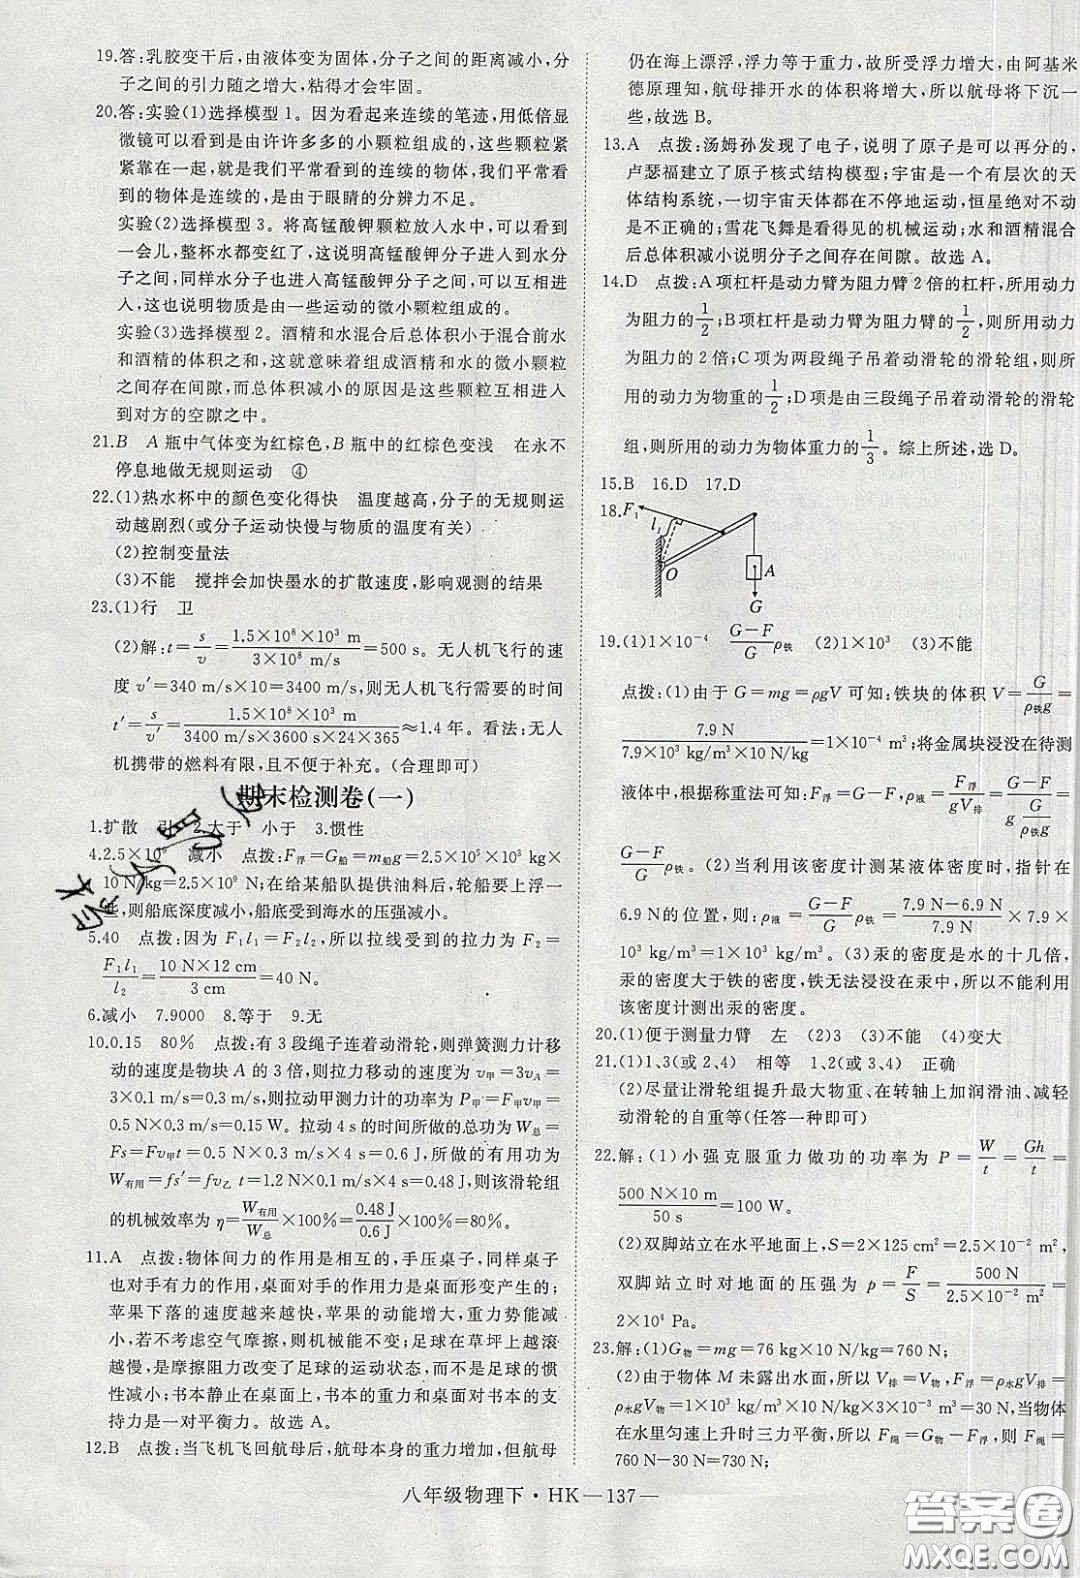 19.答:乳胶变干后,由液体变为固体,分子之间的距离减小,分
子之间的引力随之增大,粘得才会牢固。
20.答:实验(1)选择模型1。因为看起来连续的笔迹,用低倍显
微镜可以看到是由许许多多的小颗粒组成的,这些颗粒紧
紧靠在一起,就是我们平常看到的连续的物体,我们平常看
到的物体是连续的,是由于眼睛的分辨力不足。
实验(2)选择模型3。将高锰酸钾颗粒放入水中,可以看到
一会儿,整杯水都变红了,这说明高锰酸钾分子进入到水分
子之间,同样水分子也进入高锰酸钾分子之间,扩散现象可
以形成,也说明物质是由一些运动的微小颗粒组成的。
实验(3)选择模型2。酒精和水混合后总体积小于混合前水
和酒精的体积之和,这就意味着组成酒精和水的微小颗粒
之间存在间隙,而总体积减小的原因是这些颗粒互相进入
到对方的空隙之中。
21.B A瓶中气体变为红棕色,B瓶中的红棕色变浅 在永不
停息地做无规则运动 ④
22.(1)热水杯中的颜色变化得快 温度越高,分子的无规则运
动越剧烈(或分子运动快慢与物质的温度有关)
(2)控制变量法
(3)不能 搅拌会加快墨水的扩散速度,影响观测的结果
23.(1)行 卫
(2)解:t=s/v=1.5×10⁸×10³ m/3×10⁸ m/s=500 s。无人机飞行的速
度v′=340 m/s×10=3400 m/s,则无人机飞行需要的时间
t′=s/v′=1.5×10⁸×10³ m/3400 m/s×3600 s×24×365≈1.4年。看法:无人
机携带的燃料有限,且不便于补充。(合理即可)
期末检测卷(一)
1.扩散 引 2.大于 小于 3.惯性
4.2.5×10⁹ 减小 点拨:F浮=G船=m船g=2.5×10⁵×10³ kg×
10 N/kg=2.5×10⁹ N;在给某船队提供油料后,轮船要上浮一
些,则船底深度减小,船底受到海水的压强减小。
5.40 点拨:因为F₁l₁=F₂l₂,所以拉线受到的拉力为F₂=
F₁l₁/l₂=10 N×12 cm/3 cm=40 N。
6.减小 7.9000 8.等于 9.无
10.0.15 80% 点拨:有3段绳子连着动滑轮,则弹簧测力计移
动的速度是物块A的3倍,则拉力移动的速度为v甲=3vA=
3×0.1 m/s=0.3 m/s;则拉动甲测力计的功率为P甲=F甲v甲=
0.5 N×0.3 m/s=0.15 W。拉动4 s的时间所做的总功为W总=
Fs=Fv甲t=0.5 N×0.3 m/s×4 s=0.6 J,所做的有用功为
W有用=fs′=fv乙t=1.2 N×0.1 m/s×4 s=0.48 J,则该滑轮组
的机械效率为η=W有用/W总×100%=0.48 J/0.6 J×100%=80%。
11.A 点拨:物体间力的作用是相互的,手压桌子,同样桌子
也对手有力的作用,桌面对手的作用力是桌面形变产生的;
苹果下落的速度越来越快,苹果的动能增大,重力势能减
小,若不考虑空气摩擦,则机械能不变;足球在草坪上越滚
越慢,是摩擦阻力改变了足球的运动状态,而不是足球的惯
性减小;书本静止在桌面上,书本的重力和桌面对书本的支
持力是一对平衡力。故选A。
12.B 点拨:当飞机飞回航母后,航母本身的重力增加,但航母
仍在海上漂浮,浮力等于重力,故所受浮力增大,由阿基米
德原理知,航母排开水的体积将增大,所以航母将下沉一
些,故选B。
13.A 点拨:汤姆孙发现了电子,说明了原子是可以再分的,
卢瑟福建立了原子核式结构模型;宇宙是一个有层次的天
体结构系统,一切宇宙天体都在不停地运动,恒星绝对不动
是错误的;雪花飞舞是看得见的机械运动;水和酒精混合
后总体积减小说明分子之间存在间隙。故选A。
14.D 点拨:A项杠杆是动力臂为阻力臂2倍的杠杆,所用动力
为阻力的1/2;B项杠杆是动力臂为阻力臂的1/2,所以用动力
为阻力的2倍;C项为两段绳子吊着动滑轮的滑轮组,则所
用的动力为物重的1/2;D项是由三段绳吊着动滑轮的滑轮
组,则所用的动力为物体重力的1/3。综上所述,选D。
15.B 16.D 17.D
18. F₁ l₁ O A G
19.(1)1×10⁻⁴ G−F/G ρ铁 (2)1×10³ (3)不能
点拨:(1)由于G=mg=ρgV可知:铁块的体积V=G/ρ铁g=
7.9 N/7.9×10³ kg/m³×10 N/kg=1×10⁻⁴ m³;将金属块浸没在待测
液体中,根据称重法可知:F浮=G−F,ρ液=F浮/gV排=G−F/g G/ρ铁g=
G−F/G ρ铁。(2)当利用该密度计测某液体密度时,指针在
6.9 N的位置,则:ρ液=G−F/G ρ铁=7.9 N−6.9 N/7.9 N×7.9×
10³ kg/m³=1×10³ kg/m³。(3)汞的密度是水的十几倍,
汞的密度大于铁的密度,铁无法浸没在汞中,所以不能利用
该密度计测出汞的密度。
20.(1)便于测量力臂 左 (2)3 (3)不能 (4)变大
21.(1)1、3(或2、4) 相等 1、2(或3、4) 正确
(2)尽量让滑轮组提升最大物重、在转轴上加润滑油、减轻
动滑轮的自重等(任答一种即可)
22.解:(1)小强克服重力做功的功率为P=W/t=Gh/t=
500 N×10 m/50 s=100 W。
(2)双脚站立在水平地面上,S=2×125 cm²=2.5×10⁻² m²,
双脚站立时对地面的压强为p=F/S=500 N/2.5×10⁻² m²=
2×10⁴ Pa。
23.解:(1)G物=mg=76 kg×10 N/kg=760 N;
(2)由于物体M未露出水面,所以V排=V物,F浮=ρ水gV排=
ρ水gV物=1×10³ kg/m³×10 N/kg×3×10⁻³ m³=30 N,当物体
在水里匀速上升时三力平衡,所以F绳=G物−F浮,则F绳=
760 N−30 N=730 N;
八年级物理下·HK—137—
答案圈
MXQE.COM